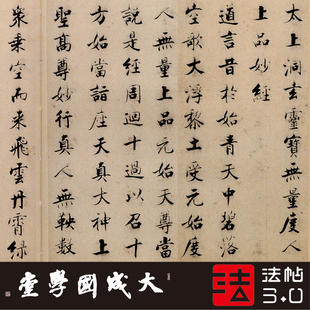 太上洞玄靈寳無量度人
上品妙經
道言昔於始青天中碧落
空歌大浮黎土受元始度
人無量上品元始天尊當
說是經周迴十過以召十
方始當詣座天真大神上
聖高尊妙行真人無鞅數
衆乘空而来飛雲丹霄緑
大成國學堂
法
法帖
3.0